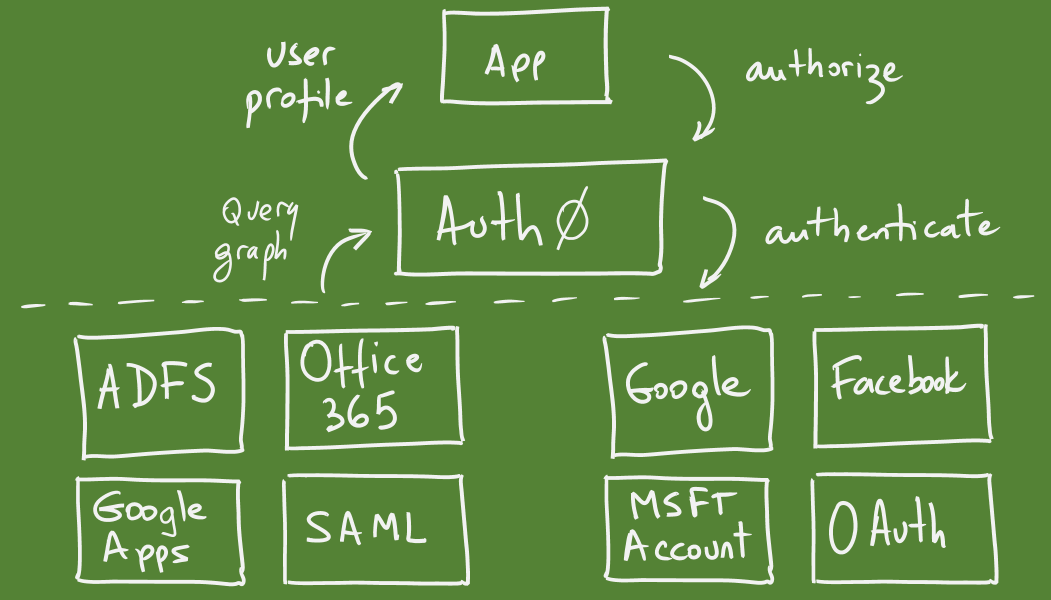 User
profile
App
authorize
Query
graph
Authø
authenticate
ADFS
Office
365
Google
Facebook
Google
Apps
SAML
MSFT
Account
OAuth